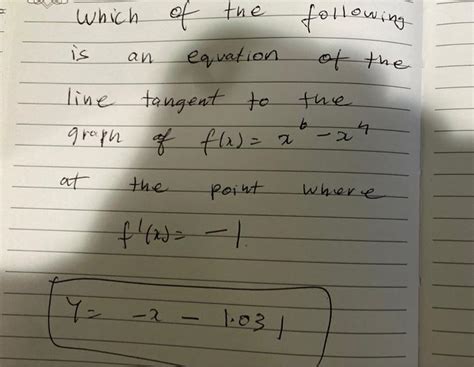 which of the following
is an equation of the
line tangent to the
graph of f(x) = x⁶ - x⁴
at the point where
f'(x) = -1
y = -x - 1.031